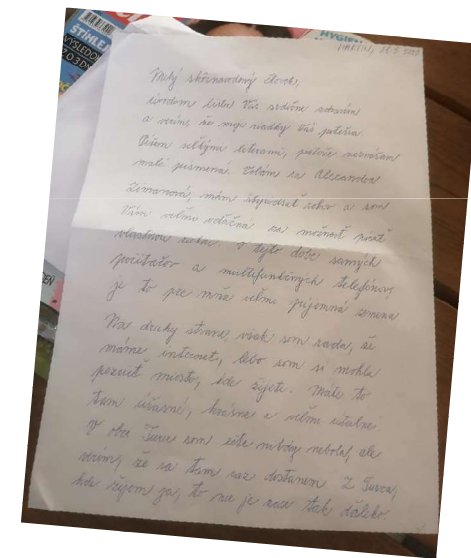 ŠTÍHLEJ
VÝSLEDOK
ZO 3 DNÍ
HYGIEN
Martin, 2020
Milý skôrnarodený človek,
úvodom listu Vás srdečne zdravím
a verím, že moje riadky Vás potešia.
Píšem veľkými literami, pretože neznášam
malé písmená. Volám sa Alexandra
Zemanová, mám štyridsať rokov a som
Vám veľmi vďačná za možnosť písať
vlastnou rukou. V tejto dobe samých
počítačov a multifunkčných telefónov,
je to pre mňa veľmi príjemná zmena
Na druhej strane, však som rada, že
máme internet, lebo som si mohla
pozrieť miesto, kde žijete. Máte to
tam úžasné, krásne a veľmi útulné.
V obci Turie som ešte nebola, ale
verím, že sa tam raz dostanem. Z Turca,
kde žijem ja, to nie je zase tak ďaleko